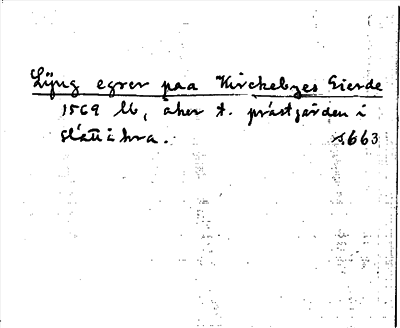 Lÿng egrer paa Kirckebyes Gierde
1569 lb, åker t. prästgården i
Slättåkra. s.663